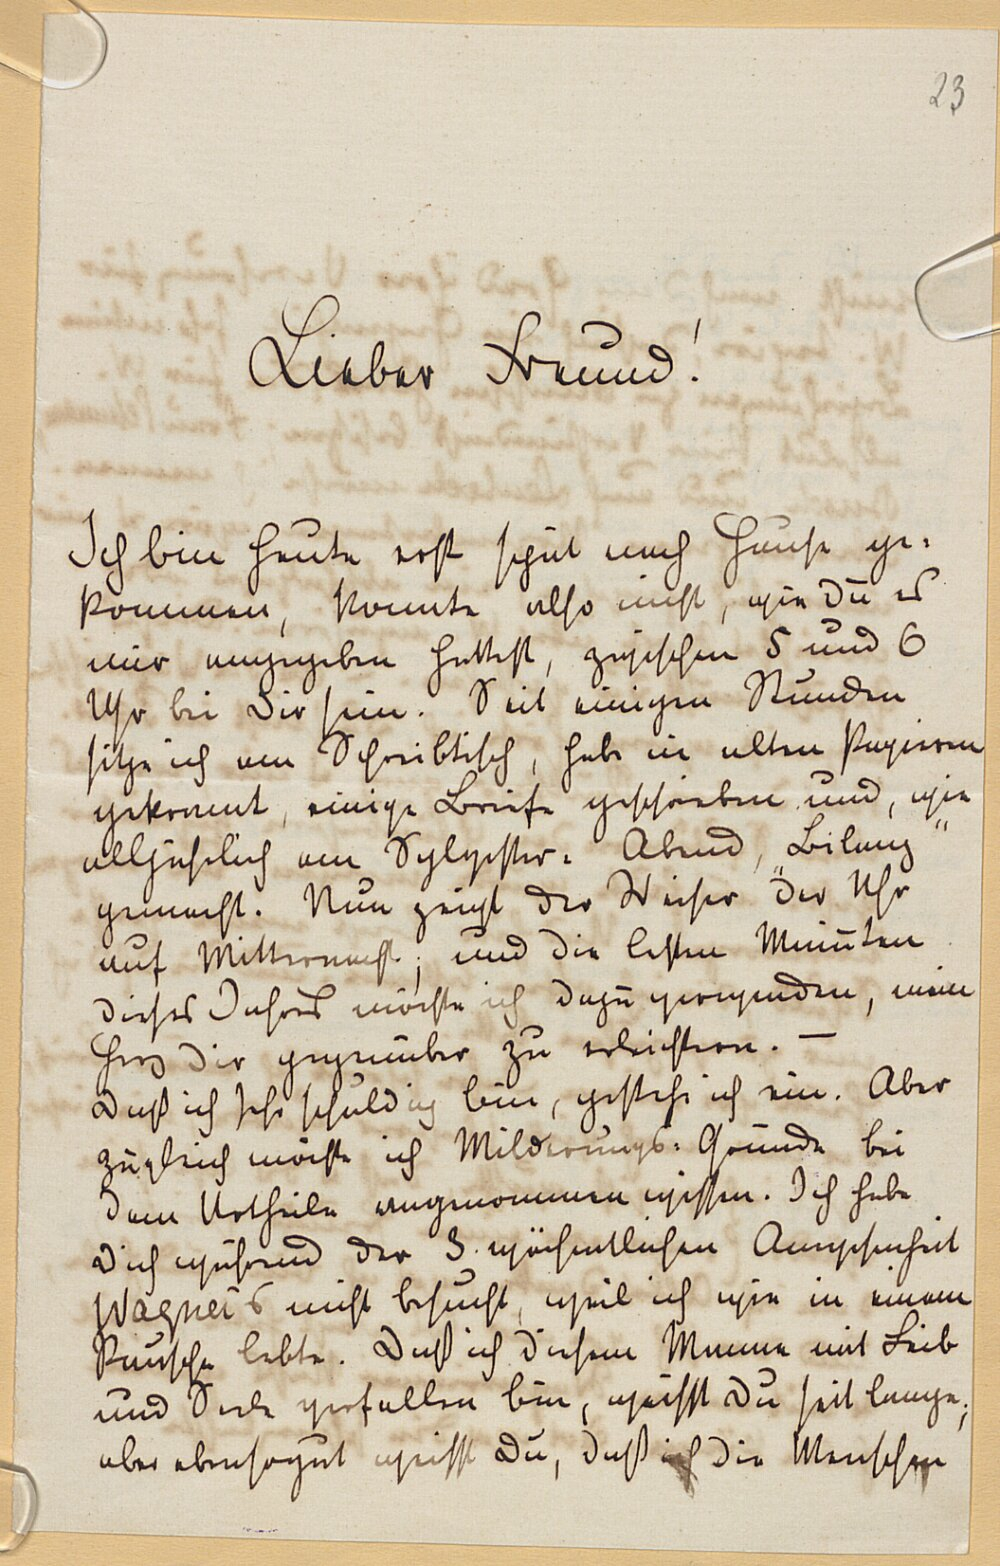 23
Lieber Freund!
Ich bin heute erst spät nach Hause ge-
kommen, konnte also nicht, wie Du es
mir angegeben hattest, zwischen 5 und 6
Uhr bei Dir sein. Seit einigen Stunden
sitze ich am Schreibtisch, habe in alten Papieren
gekramt, einige Briefe geschrieben und, wie
alljährlich am Sylvester-Abend, „Bilanz“
gemacht. Nun zeigt der Weiser der Uhr
auf Mitternacht, und die letzten Minuten
dieses Jahres möchte ich dazu verwenden, mein
Herz Dir gegenüber zu erleichtern. —
Daß ich sehr schuldig bin, gestehe ich ein. Aber
zugleich möchte ich Milderungs-Gründe bei
dem Urtheile angenommen wissen. Ich habe
Dich während der 3 wöchentlichen Anwesenheit
Wagner's nicht besucht, weil ich wie in einem
Rausche lebte. Daß ich diesem Manne mit Leib
und Seele verfallen bin, weißt Du seit lange;
aber ebensogut weißt Du, daß ich die Menschen